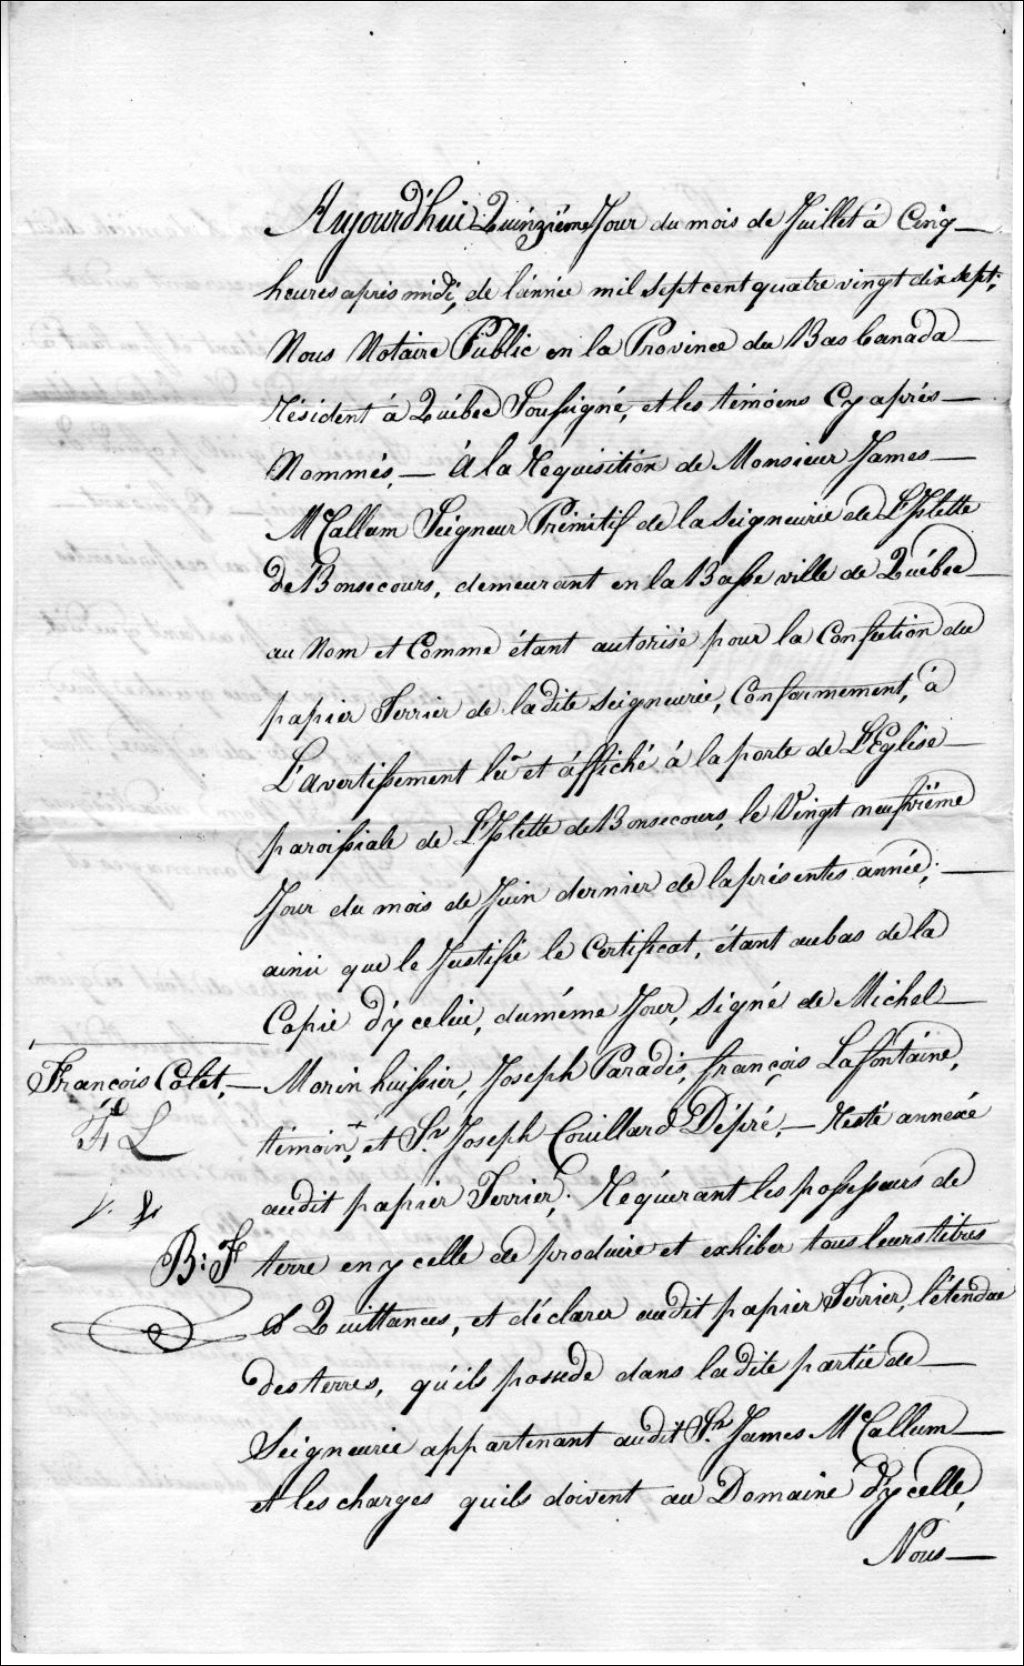 Aujourd'hui Quinziéme Jour du mois de Juillet á Cinq
heures aprés midi, de l'année mil sept cent quatre vingt dix sept;
Nous Notaire Public en la Province du Bas Canada
Résident á Québec Soussigné, et les témoins Cy aprés
Nommés, — á la Requisition de Monsieur James
McCallum Seigneur Primitif de la Seigneurie de L'Islette
de Bonsecours, demeurant en la Basse ville de Québec
au Nom et Comme étant autorisé pour la Confection du
papier Terrier de la dite Seigneurie, Conformement, á
L'avertissement lû et áffiché á la porte de L'Eglise
paroissiale de L'Islette de Bonsecours, le Vingt neufviéme
Jour du mois de Juin dernier de la présentes année;
ainsi que le Justifie le Certificat, étant au bas de la
Copie d'ycelui, du méme Jour, signé de Michel
François Colet, — Morin huissier, Joseph Paradis, françois Lafontaine,
F L
témoin+, et Sr. Joseph Couillard Dépré, — Resté annexé
audit papier Terrier; Requerant les possesseurs de
B: F
terre en ycelle de produire et exhiber tous leurs titres
& Quittances, et déclarer audit papier Terrier, l'étendue
des terres, qu'ils possede dans la dite partie de
Seigneurie appartenant audit Sr. James McCallum
et les charges qu'ils doivent au Domaine d'ycelle,
Nous